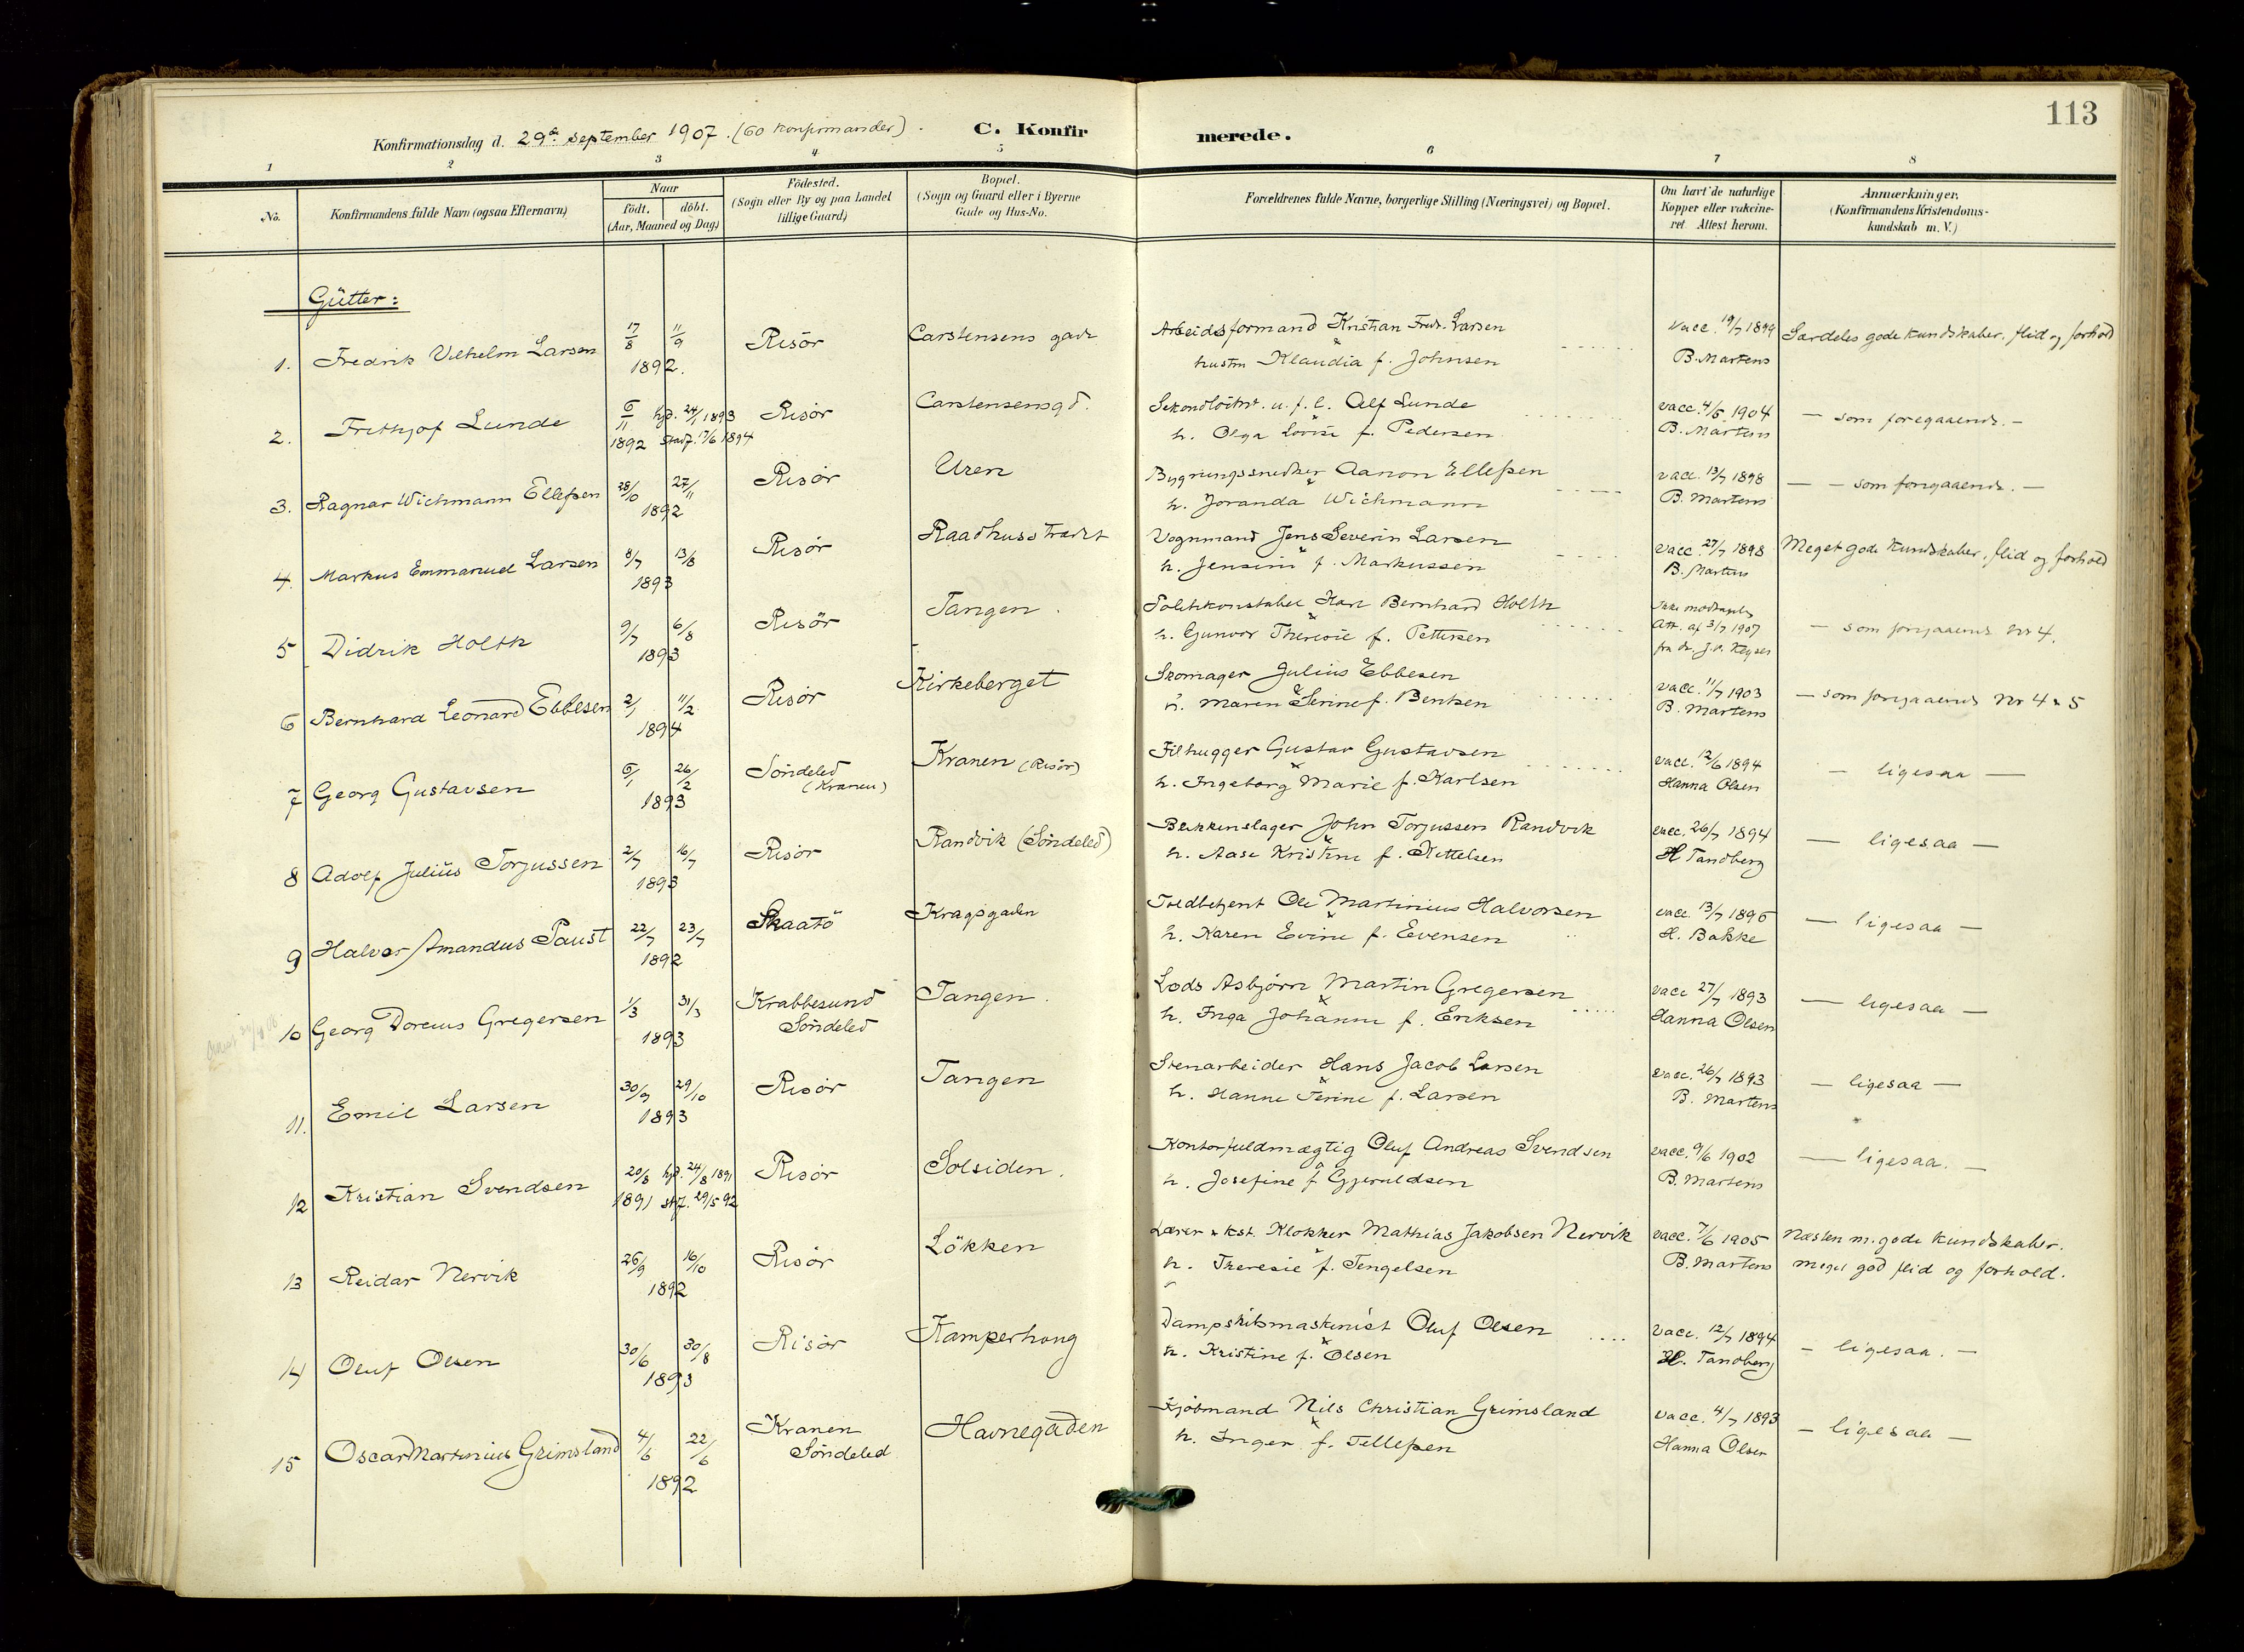 113
Konfirmationsdag d. 29de september 1907. (60 konfirmander). C. Konfirmerede.
1 2 3 4 5 6 7 8
No.
Konfirmandens fulde Navn (ogsaa Efternavn)
Naar
födt. döbt.
(Aar, Maaned og Dag)
Födested.
(Sogn eller By og paa Landet
tillige Gaard)
Bopæl.
(Sogn og Gaard eller i Byerne
Gade og Hus-No.
Forældrenes fulde Navne, borgerlige Stilling (Næringsvei) og Bopæl.
Om havt de naturlige
Kopper eller vakcine-
ret. Attest herom.
Anmærkninger.
(Konfirmandens Kristendoms-
kundskab m. V.)
Gutter:
1. Fredrik Vilhelm Larsen 17/8 11/9 1892. Risör Carstensens gade
Arbeidsformand Kristian Fredr. Larsen
hustru Klaudia f. Johnsen
vacc. 19/7 1899
B. Martens
Særdeles gode kundskaber, flid og forhold
2. Frithjof Lunde 6/11 1892 hjd. 24/1 1893 stadf. 17/6 1894 Risör Carstensensgd.
Sekondlöitnt. u. f. l. Alf Lunde
h. Olga Lovise f. Pedersen
vacc. 4/5 1904
B. Martens
— som foregaaende. —
3. Ragnar Wichmann Ellefsen 28/10 27/11 1892 Risör Uren
Bygningssnedker Aanon Ellefsen
h. Joranda Wichmann
vacc. 13/7 1898
B. Martens
— — som foregaaende. —
4. Markus Emmanuel Larsen 8/7 13/8 1893 Risör Raadhusstrædet
Vognmand Jens Severin Larsen
h. Jensine f. Markussen
vacc. 27/7 1898
B. Martens
Meget gode kundskaber, flid og forhold
5 Didrik Holth 9/7 6/8 1893 Risör Tangen
Politikonstabel Karl Bernhard Holth
h. Gunvor Theresie f. Pettersen
Ikke modtagelig
Att. af 3/7 1907
fra Dr. J. v. Keyser
— som foregaaende Nr 4.
6 Bernhard Leonard Ebbesen 2/1 11/2 1894 Risör Kirkeberget
Skomager Julius Ebbesen
h. Maren Serine f. Bentsen
vacc. 11/7 1903
B. Martens
— som foregaaende Nr 4 & 5
7 Georg Gustavsen 6/1 26/2 1893 Söndeled (Kranen) Kranen (Risör)
Filhugger Gustav Gustavsen
h. Ingeborg Marie f. Karlsen
vacc. 12/6 1894
Hanna Olsen
— ligesaa —
8 Adolf Julius Torjussen 2/7 16/7 1893 Risör Randvik (Söndeled)
Blikkenslager John Torjussen Randvik
h. Aase Kristine f. Kittelsen
vacc. 26/7 1894
H. Tandberg
— ligesaa —
9 Halvor Amandus Paust 22/7 23/7 1892 Skaatö Kragsgaden
Toldbetjent Ole Martinius Halvorsen
h. Karen Evine f. Evensen
vacc 13/7 1896
H. Bakke
— ligesaa —
10 Georg Doreius Gregersen 1/3 31/3 1893 Krabbesund Söndeled Tangen.
Lods Asbjørn Martin Gregersen
h. Inga Johanne f. Eriksen
vacc 27/7 1893
Hanna Olsen
— ligesaa —
11. Emil Larsen 30/9 29/10 1893 Risör Tangen
Stenarbeider Hans Jacob Larsen
h. Hanne Terine f. Larsen
vacc. 26/7 1893
B. Martens
— ligesaa —
12 Kristian Svendsen 20/8 1891 hjd. 24/8 1891 stf. 29/5 92 Risör Solsiden.
Kontorfuldmægtig Oluf Andreas Svendsen
h. Josefine f. Gjeruldsen
vacc. 9/6 1902
B. Martens
— ligesaa. —
13 Reidar Nervik 26/9 16/10 1892 Risör Lökken
Lærer & kst. Klokker Mathias Jakobsen Nervik
h. Theresie f. Tengelsen
vacc. 7/6 1905
B. Martens
Næsten m. gode kundskaber.
meget god flid og forhold.
14 Oluf Olsen 30/6 30/8 1893 Risör Kamperhoug
Dampskibsmaskinist Oluf Olsen
h. Kristine f. Olsen
vacc. 12/7 1894
H. Tandberg
— ligesaa. —
15 Oscar Martinius Grimsland 4/6 22/6 1892 Kranen Söndeled Havnegaden
Kjöbmand Nils Christian Grimsland
h. Inger f. Tellefsen
vacc. 4/7 1893
Hanna Olsen
— ligesaa —